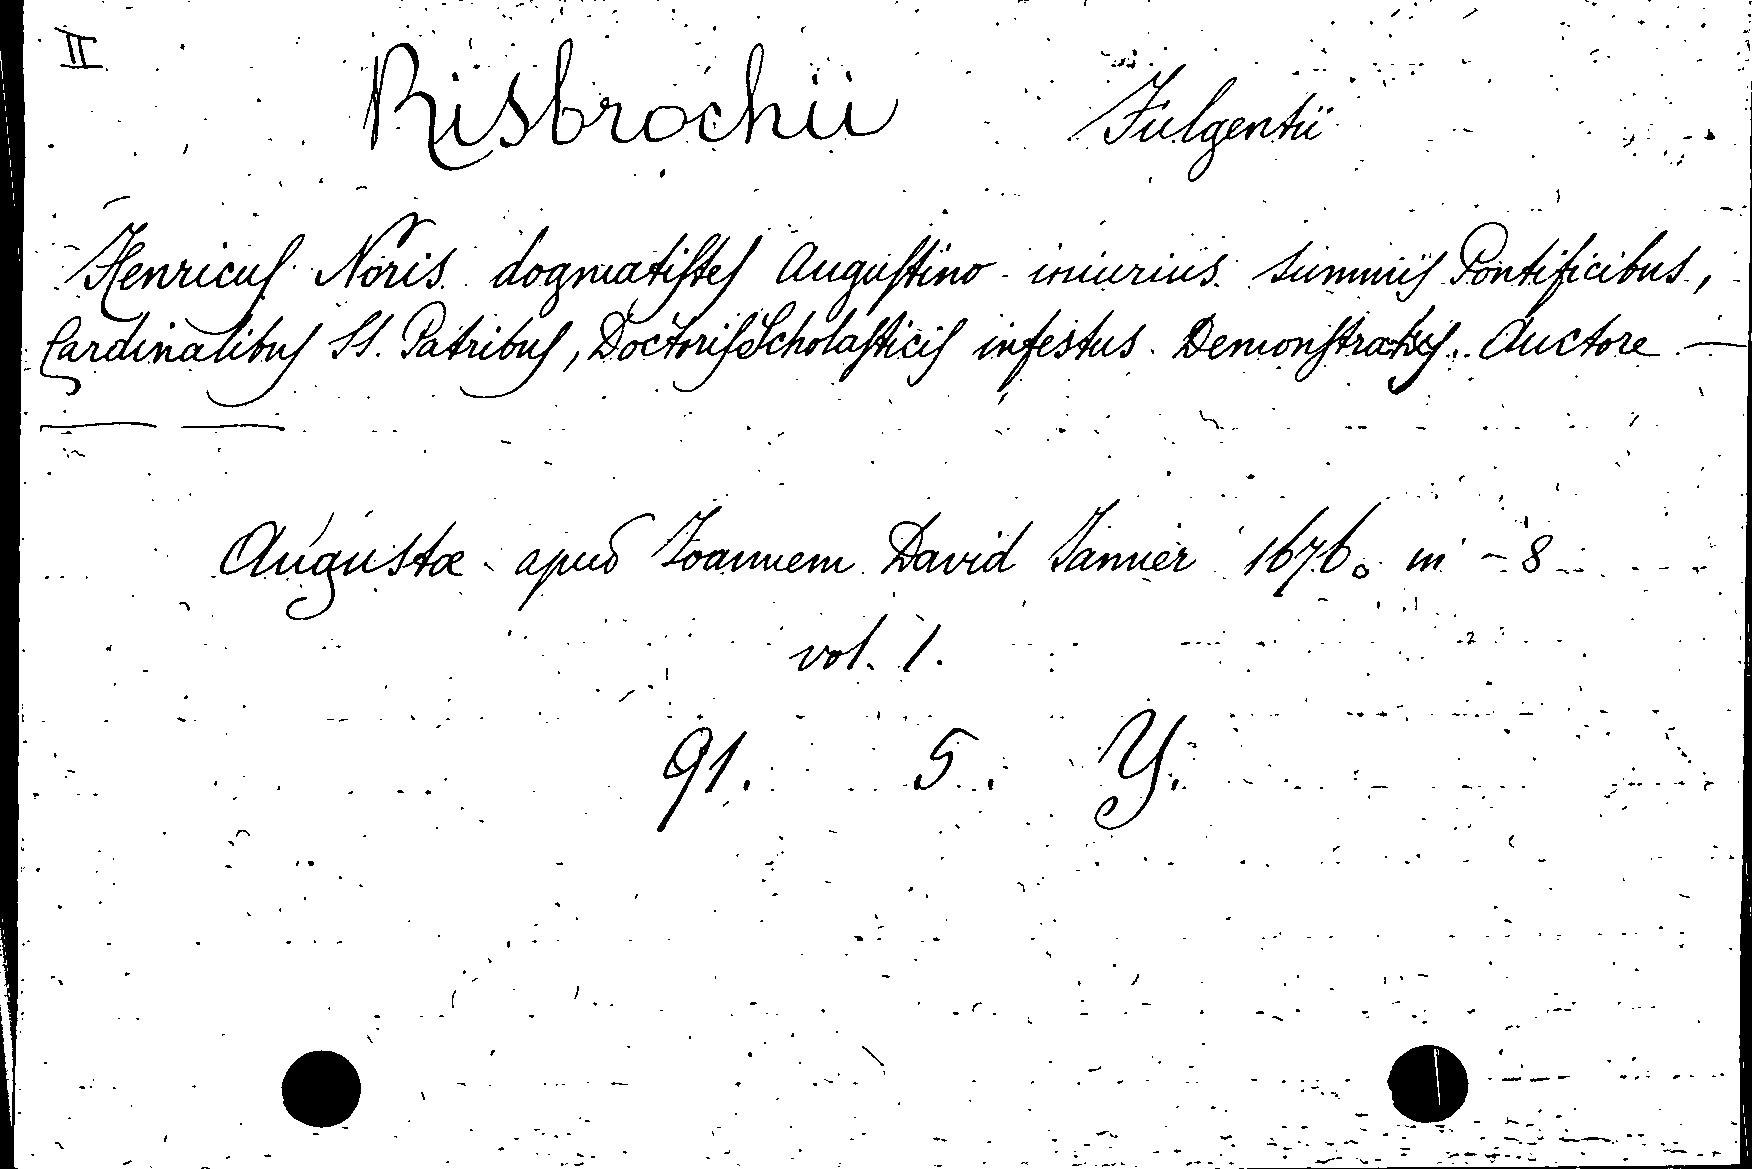 II
Risbrochii Fulgentii
Henricus Noris dogmatistes Augustino iniurius summis Pontificibus,
Cardinalibus SS. Patribus, Doctoris Scholasticis infestus. Demonstratus. Auctore —
— —
Augustæ apud Joannem David Janner 1676. in - 8
vol. 1.
91. 5. Y.